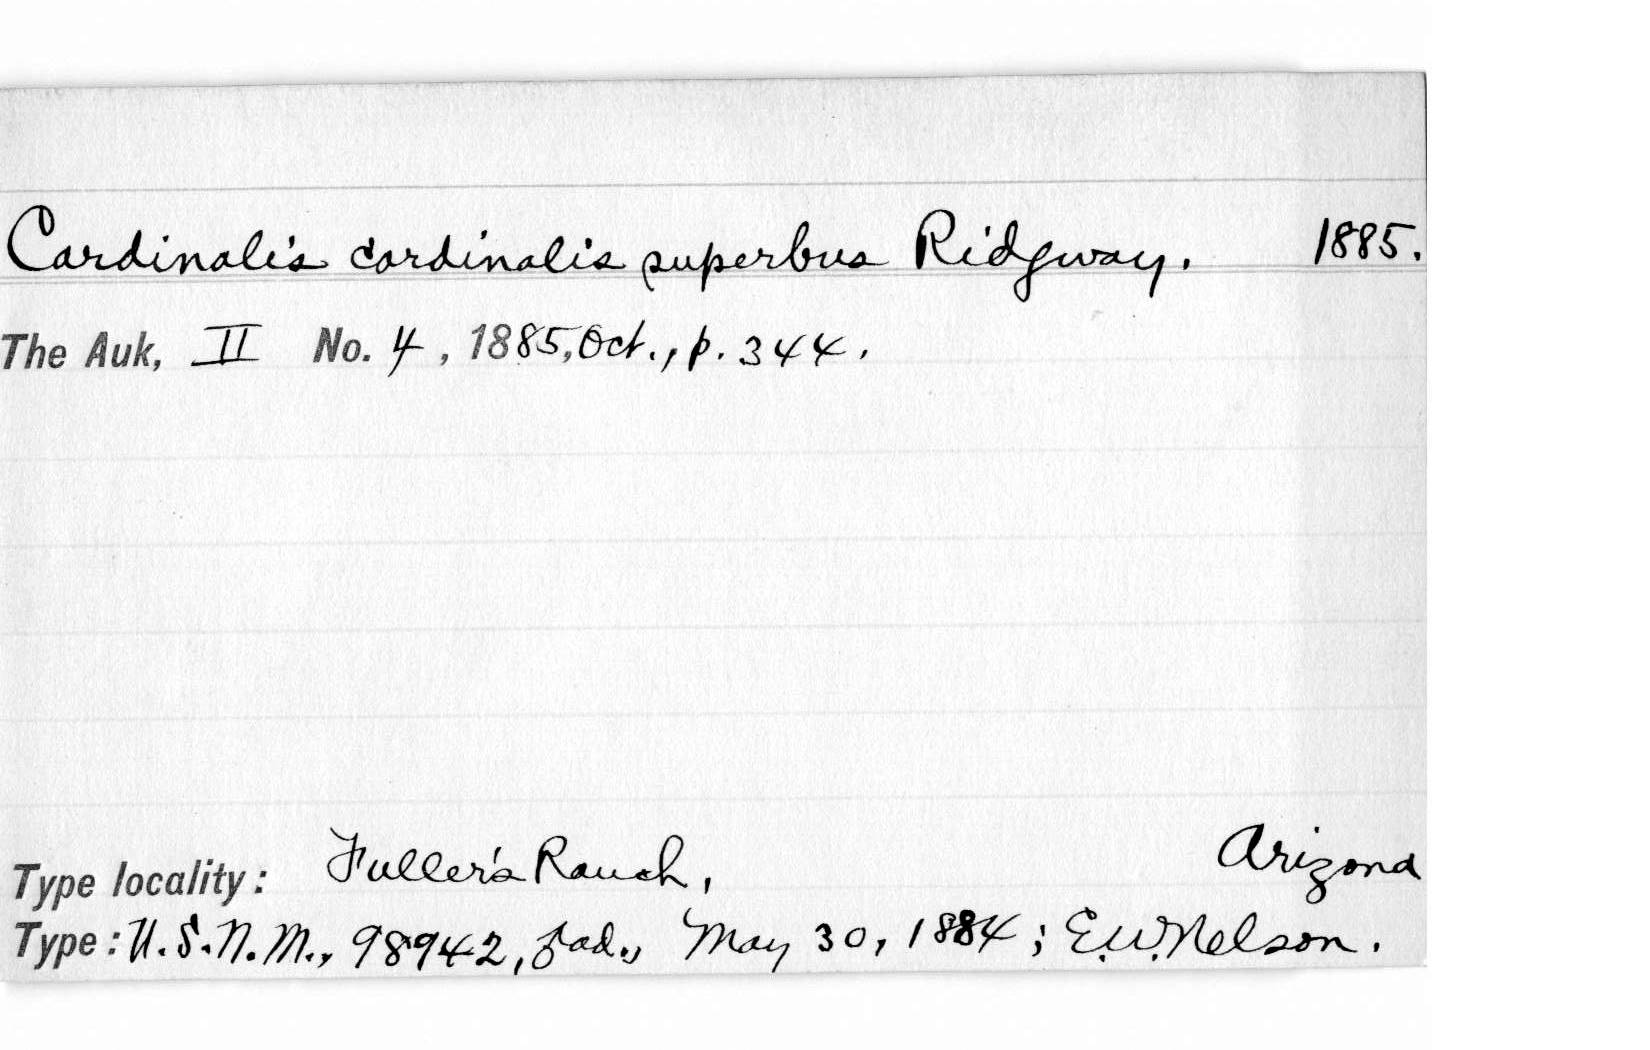 Cardinalis cardinalis superbus Ridgway. 1885.
The Auk, II No. 4, 1885, Oct., p. 344.
Type locality: Fuller's Ranch, Arizona
Type: U.S.N.M., 98942, ♂ ad., May 30, 1884; E.W. Nelson.